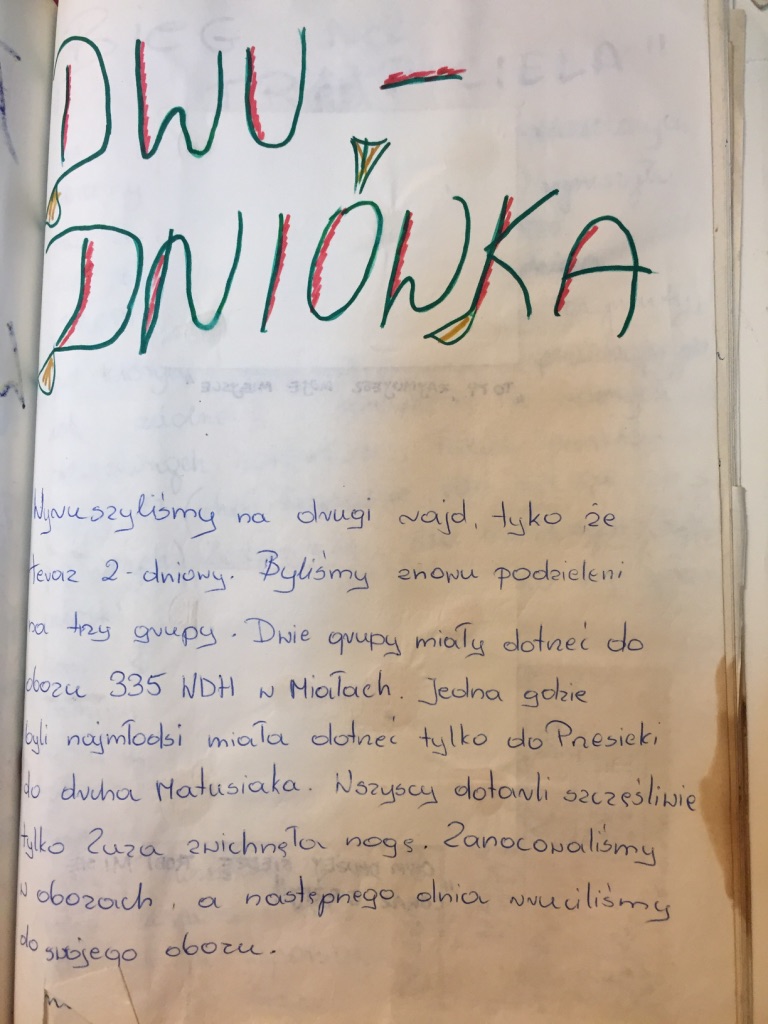 DWU-
DNIÓWKA
Wyruszyliśmy na drugi rajd, tyko że
teraz 2-dniowy. Byliśmy znowu podzieleni
na trzy grupy. Dwie grupy miały dotrzeć do
obozu 335 WDH w Miałach. Jedna gdzie
byli najmłodsi miała dotrzeć tylko do Przesieki
do drucha Matusiaka. Wszyscy dotarli szczęśliwie
tylko Zuza zwichnęła nogę. Zanocowaliśmy
w obozach, a następnego dnia wruciliśmy
do swojego obozu.